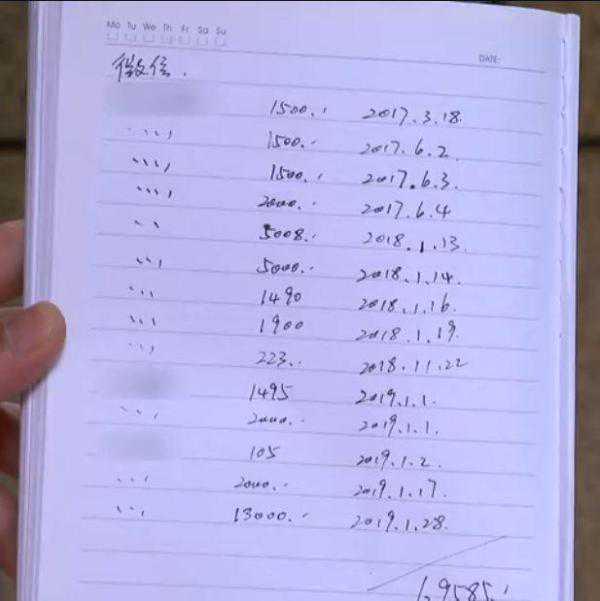 Mo Tu We Th Fr Sa Su
DATE:
微信.
1500.: 2017.3.18.
〃 1500.: 2017.6.2.
〃 1500.: 2017.6.3.
〃 2000.: 2017.6.4
〃 5008.: 2018.1.13.
〃 5000.: 2018.1.14.
〃 1490 2018.1.16.
〃 1900 2018.1.19.
〃 223.: 2018.11.22
1495 2019.1.1.
〃 2000.: 2019.1.1.
105 2019.1.2.
〃 2000.: 2019.1.17.
〃 13000.: 2019.1.28.